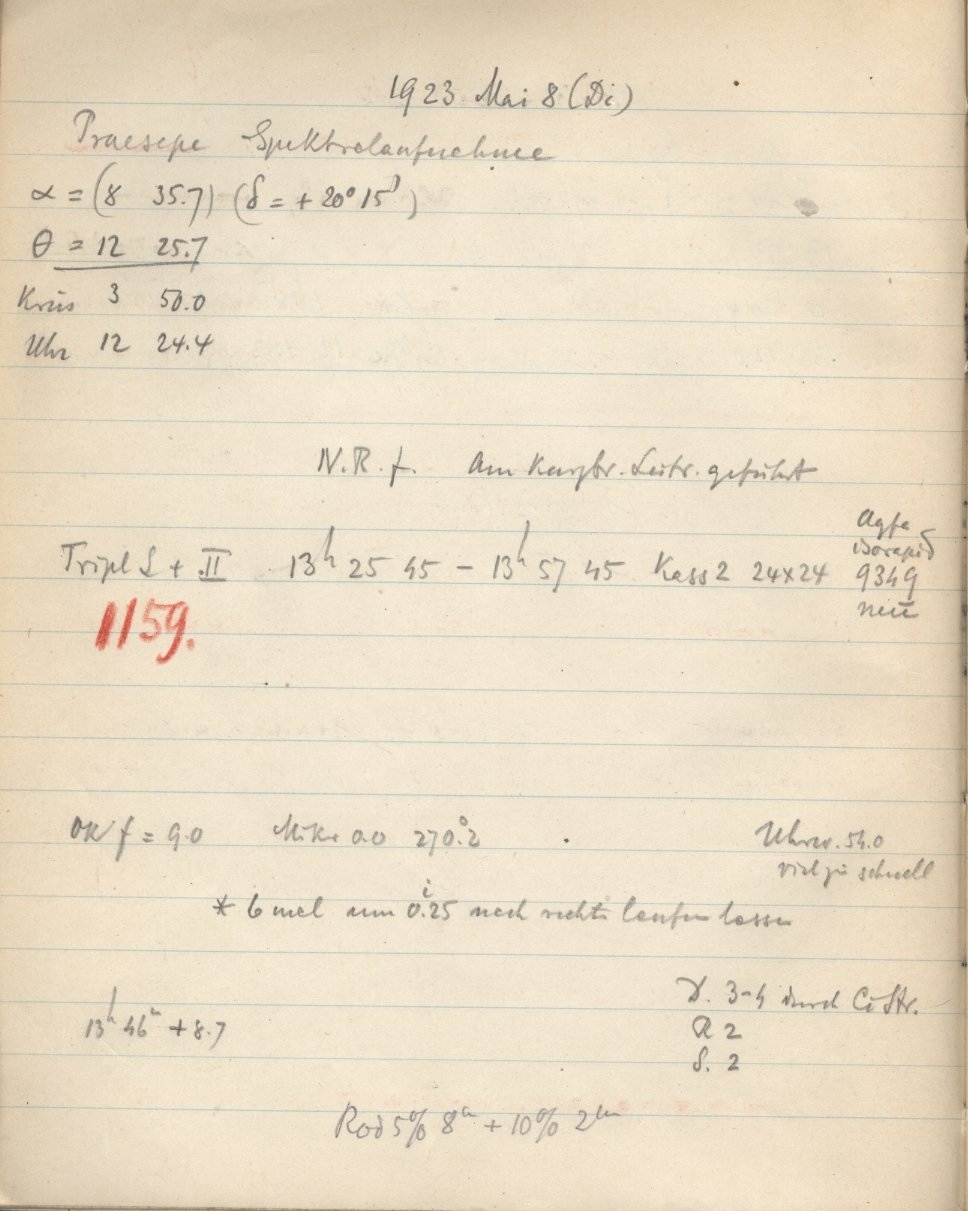 1923 Mai 8 (Di)
Praesepe Spektralaufnahme
α = (8 35.7) (δ = + 20° 15')
θ = 12 25.7
Kreis 3 50.0
Uhr 12 24.4
N.R.f. Am Leitr. geführt
Agfa
Isorapid
Tripl L + II 13h 25 45 – 13h 57 45 Kass 2 24x24 9349
neu
1159.
OK f = 9.0 Mikr 0.0 270.°2
Uhrw. 54.0
viel zu schnell
* 6 mal um 0.25 nach rechts laufen lassen
D. 3-4 durch Ci Str.
13h 46m + 8.7
R 2
S. 2
Rod 5% 8m + 10% 2m